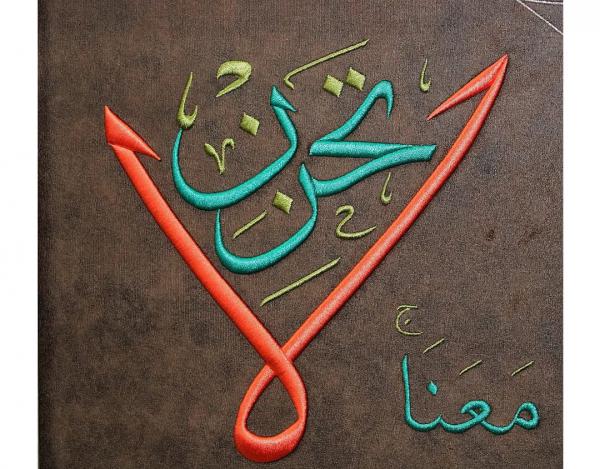 لا تحزن
مَعَنَا